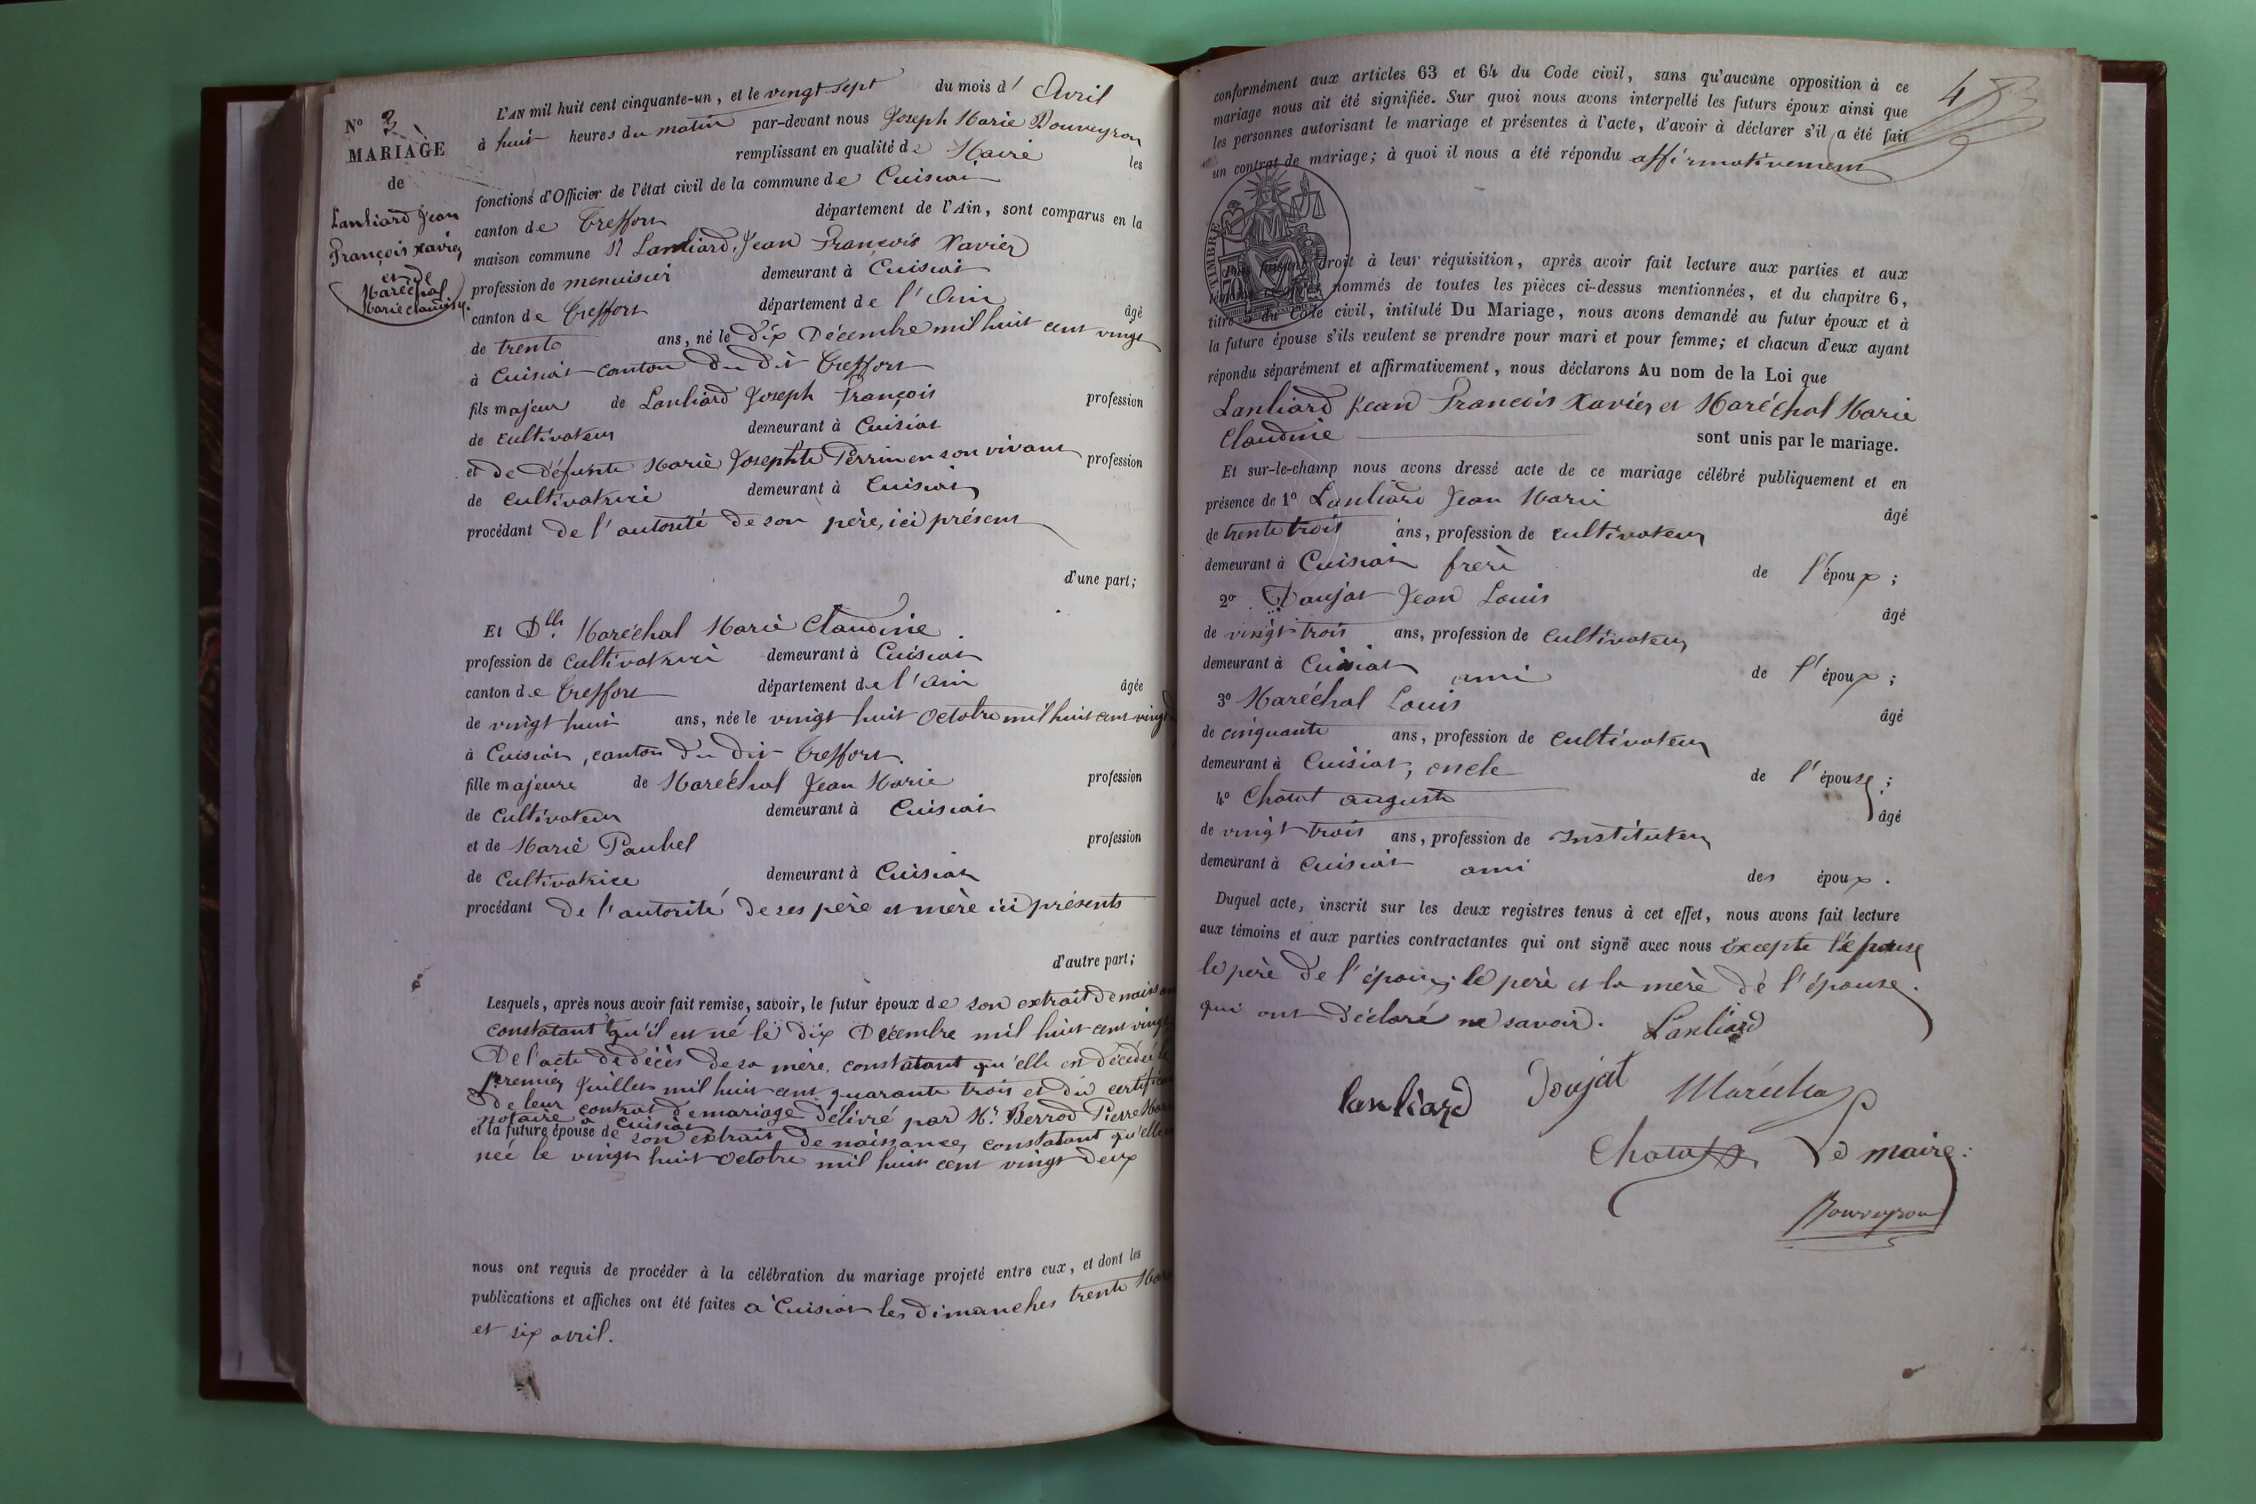 N° 3
MARIAGE
de
Lanliard Jean
François Xavier
et de
Maréchal
Marie Claudine.
L'AN mil huit cent cinquante-un, et le vingt sept du mois d' Avril
à huit heures du matin par-devant nous Joseph Marie Bouveyron
remplissant en qualité de Maire les
fonctions d'Officier de l'état civil de la commune de Cuisiat
canton de Treffort département de l'Ain, sont comparus en la
maison commune Lanliard, Jean François Xavier
profession de menuisier demeurant à Cuisiat
canton de Treffort département de l'Ain âgé
de trente ans, né le dix Décembre mil huit cent vingt
à Cuisiat canton du dit Treffort
fils majeur de Lanliard Joseph François profession
de cultivateur demeurant à Cuisiat
et de défunte Marie Josephte Perrin en son vivant profession
de cultivatrice demeurant à Cuisiat
procédant de l'autorité de son père, ici présent
d'une part;
Et Dlle Maréchal Marie Claudine
profession de cultivatrice demeurant à Cuisiat
canton de Treffort département de l'Ain âgée
de vingt huit ans, née le vingt huit Octobre mil huit cent vingt
à Cuisiat, canton du dit Treffort.
fille majeure de Maréchal Jean Marie profession
de cultivateur demeurant à Cuisiat
et de Marie Pauhel profession
de Cultivatrice demeurant à Cuisiat
procédant de l'autorité de ses père et mère ici présents
d'autre part;
Lesquels, après nous avoir fait remise, savoir, le futur époux de son extrait de naissance
constatant qu'il est né le dix Décembre mil huit cent vingt
De l'acte de décès de sa mère, constatant qu'elle est décédée le
premier Juillet mil huit cent quarante trois et du certificat
de leur contrat de mariage délivré par Mr. Berrod Pierre Marie
notaire à Cuisiat
et la future épouse de son extrait de naissance, constatant qu'elle
née le vingt huit Octobre mil huit cent vingt deux
nous ont requis de procéder à la célébration du mariage projeté entre eux, et dont les
publications et affiches ont été faites à Cuisiat les dimanches trente Mars
et six avril.
4
conformément aux articles 63 et 64 du Code civil, sans qu'aucune opposition à ce
mariage nous ait été signifiée. Sur quoi nous avons interpellé les futurs époux ainsi que
les personnes autorisant le mariage et présentes à l'acte, d'avoir à déclarer s'il a été fait
un contrat de mariage; à quoi il nous a été répondu affirmativement
TIMBRE
droit à leur réquisition, après avoir fait lecture aux parties et aux
nommés de toutes les pièces ci-dessus mentionnées, et du chapitre 6,
titre 5 du Code civil, intitulé Du Mariage, nous avons demandé au futur époux et à
la future épouse s'ils veulent se prendre pour mari et pour femme; et chacun d'eux ayant
répondu séparément et affirmativement, nous déclarons Au nom de la Loi que
Lanliard Jean François Xavier et Maréchal Marie
Claudine sont unis par le mariage.
Et sur-le-champ nous avons dressé acte de ce mariage célébré publiquement et en
présence de 1° Lanliard Jean Marie âgé
de trente trois ans, profession de cultivateur
demeurant à Cuisiat frère de l'époux;
2° Daujat Jean Louis âgé
de vingt trois ans, profession de cultivateur
demeurant à Cuisiat ami de l'époux;
3° Maréchal Louis âgé
de cinquante ans, profession de cultivateur
demeurant à Cuisiat, oncle de l'épouse;
4° Chatat auguste âgé
de vingt trois ans, profession de Instituteur
demeurant à Cuisiat ami des époux.
Duquel acte, inscrit sur les deux registres tenus à cet effet, nous avons fait lecture
aux témoins et aux parties contractantes qui ont signé avec nous excepté l'épouse
le père de l'époux, le père et la mère de l'épouse.
qui ont déclaré ne savoir. Lanliard
Lanliard Doujat Maréchal
Chatat Le maire:
Bouveyron